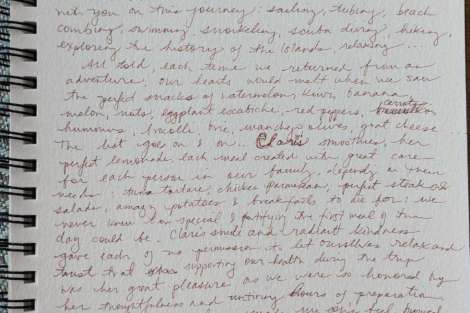 met you on this journey: sailing, tubing, beach
combing, swimming, snorkeling, scuba diving, hiking,
exploring the history of the islands, relaxing...
All told each time we returned from an
adventure, our hearts would melt when we saw
the perfect snacks of watermelon, kiwi, banana
melon, nuts, eggplant escabiche, red peppers, carrots
humours, brie, manchego olives, goat cheese
The list goes on & on. Claire's smoothies, her
perfect lemonade, each meal created with great care
for each person in our family, depending on their
needs: tuna tartare, chicken parmesan, perfect steak
salads, amazing potatoes & breakfasts to die for; we
never knew how special & fortifying the first meal of the
day could be. Claire's smile and radiant kindness
gave each of us permission to let ourselves relax and
trust that supporting our health during the trip
was her great pleasure as we were so honored by
her thoughtfulness and untiring hours of preparation
made us feel